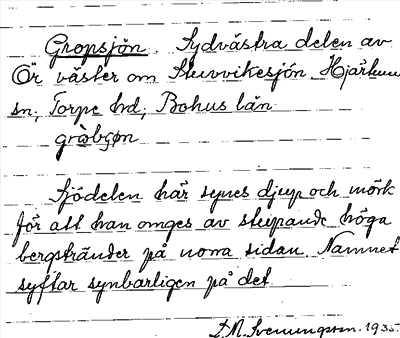 Gropsjön. Sydvästra delen av
Ör väster om Stuvvikesjön Hjärtum
sn, Torpe hd, Bohus län
grɷ̀bʂøn
Sjödelen här synes djup och mörk
för att han omges av stupande höga
bergstränder på norra sidan. Namnet
syftar synbarligen på det
D.N. Svenungsson. 1935.